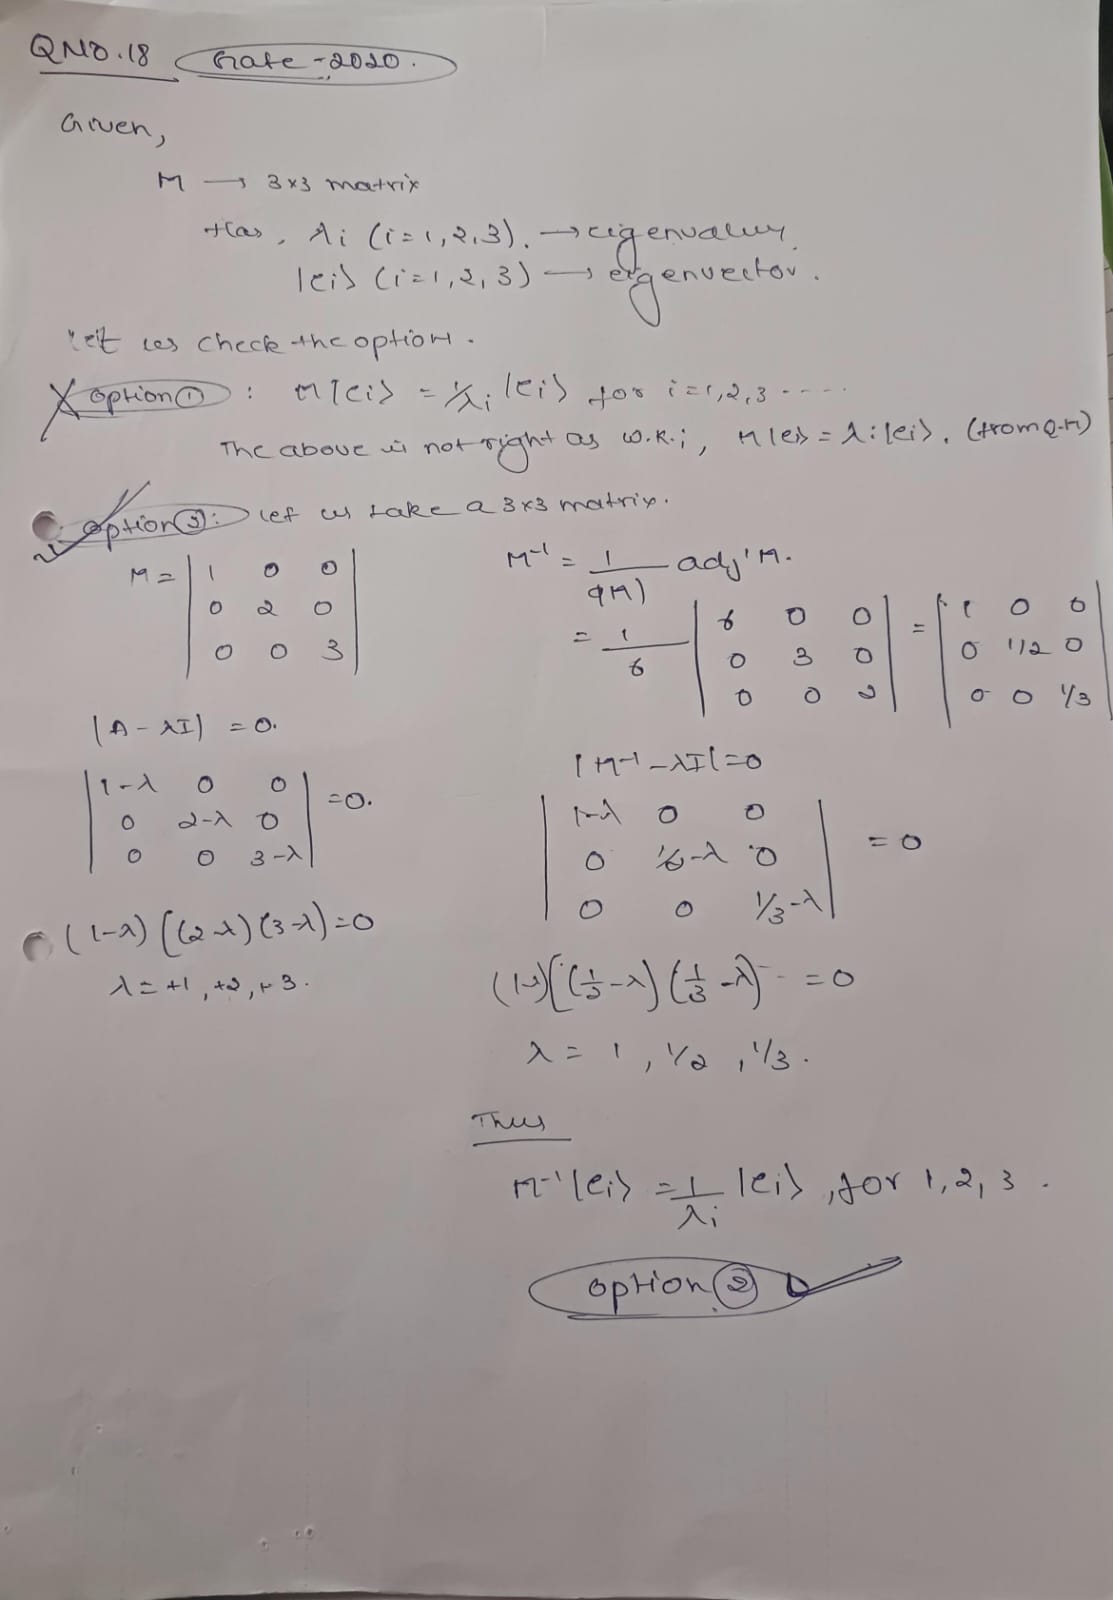 QNO.18 Gate-2020.
Given,
M → 3x3 matrix
Has, λi (i=1,2,3). → eigenvalues.
|ei> (i=1,2,3) → eigenvector.
Let us check the option.
Option ① : M|ei> = 1/λi |ei> for i=1,2,3 .....
The above is not right as w.k.; M|ei> = λi|ei>. (from Q.M)
Option ②: Let us take a 3x3 matrix.
M = | 1 0 0 |
| 0 2 0 |
| 0 0 3 |
|A - λI| = 0.
| 1-λ 0 0 |
| 0 2-λ 0 | = 0.
| 0 0 3-λ |
(1-λ) [(2-λ) (3-λ) = 0
λ = +1, +2, +3.
M⁻¹ = 1/ adj'M.
= 1/6 | 6 0 0 | = | 1 0 0 |
| 0 3 0 | | 0 1/2 0 |
| 0 0 2 | | 0 0 1/3 |
|M⁻¹ - λI| = 0
| 1-λ 0 0 |
| 0 -λ 0 | = 0
| 0 0 1/3-λ |
(1-λ)[(1/2-λ) (1/3-λ) = 0
λ = 1, 1/2, 1/3.
Thus
M⁻¹|ei> = 1/λi |ei>, for 1, 2, 3.
Option ②